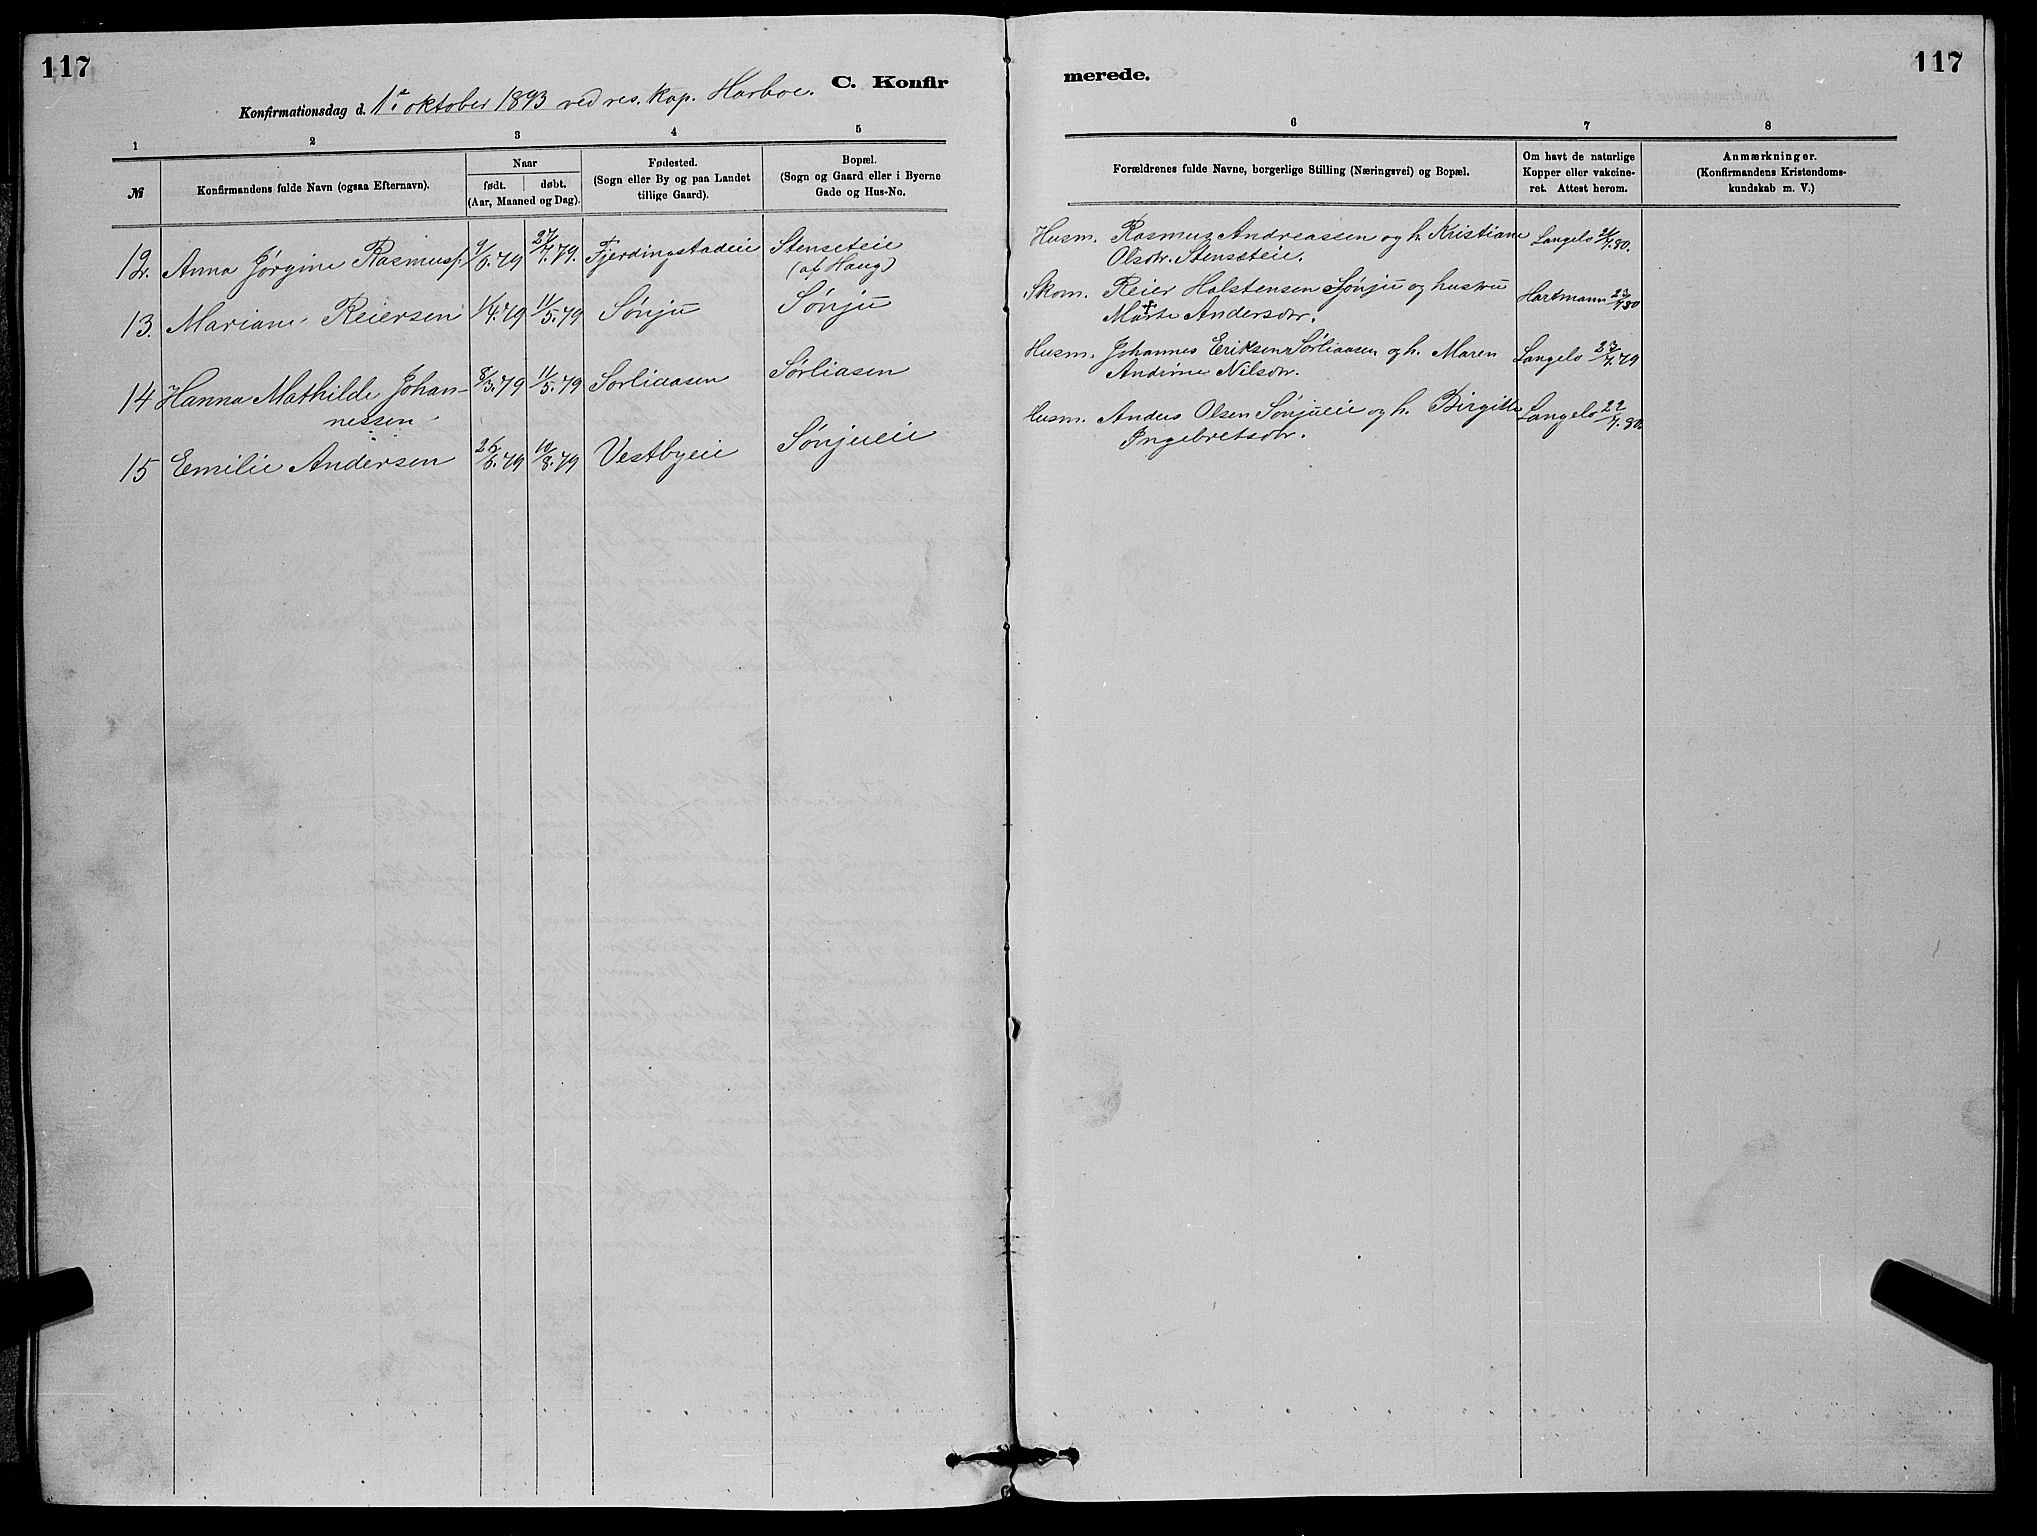 117
117
C. Konfir
merede.
Konfirmationsdag d. 1ste oktober 1893 ved res. kap. Harboe.
1 2 3 4 5
6 7 8
№
Konfirmandens fulde Navn (ogsaa Efternavn).
Naar
født. døbt.
(Aar, Maaned og Dag).
Fødested.
(Sogn eller By og paa Landet
tillige Gaard).
Bopæl.
(Sogn og Gaard eller i Byerne
Gade og Hus-No.
Forældrenes fulde Navne, borgerlige Stilling (Næringsvei) og Bopæl.
Om havt de naturlige
Kopper eller vakcine-
ret. Attest herom.
Anmærkninger.
(Konfirmandens Kristendoms-
kundskab m. V.)
12. Anna Jørgine Rasmuss. 9/6.79 27/7.79. Fjerdingstadeie Stenseteie
(af Haug)
Husm. Rasmus Andreassen og h. Kristiane Langelo /7.80.
Olsdtr. Stenseteie.
13. Mariane Reiersen 1/4.79 11/5.79 Sønju Sønju
Skom. Reier Halstensen Sønju og hustru Hartmann 23/7.80
Marte Andersdtr.
14 Hanna Mathilde Johan- 8/3.79 11/5.79 Sørliaasen Sørliasen
nessen
Husm. Johannes Eriksen Sørliaasen og h. Maren Langelo 23/7.79
Andrine Nilsdtr.
15 Emilie Andersen 26/6.79 10/8.79 Vestbyeie Sønjueie
Husm. Anders Olsen Sønjueie og h. Birgitte Langelo 22/7.80.
Ingebretsdtr.